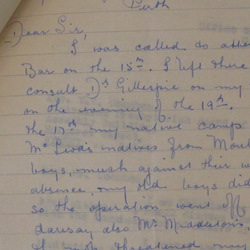 Perth
Dear Sir,
I was called to atte
Bar on the 15th. I left there
consult Dr Gillespie on my
on the evening of the 19th.
the 17th my native camp
McLeod's natives from
boys, much against their w
absence, my old boys did
so the operation went off
daresay also Mr Middleton's